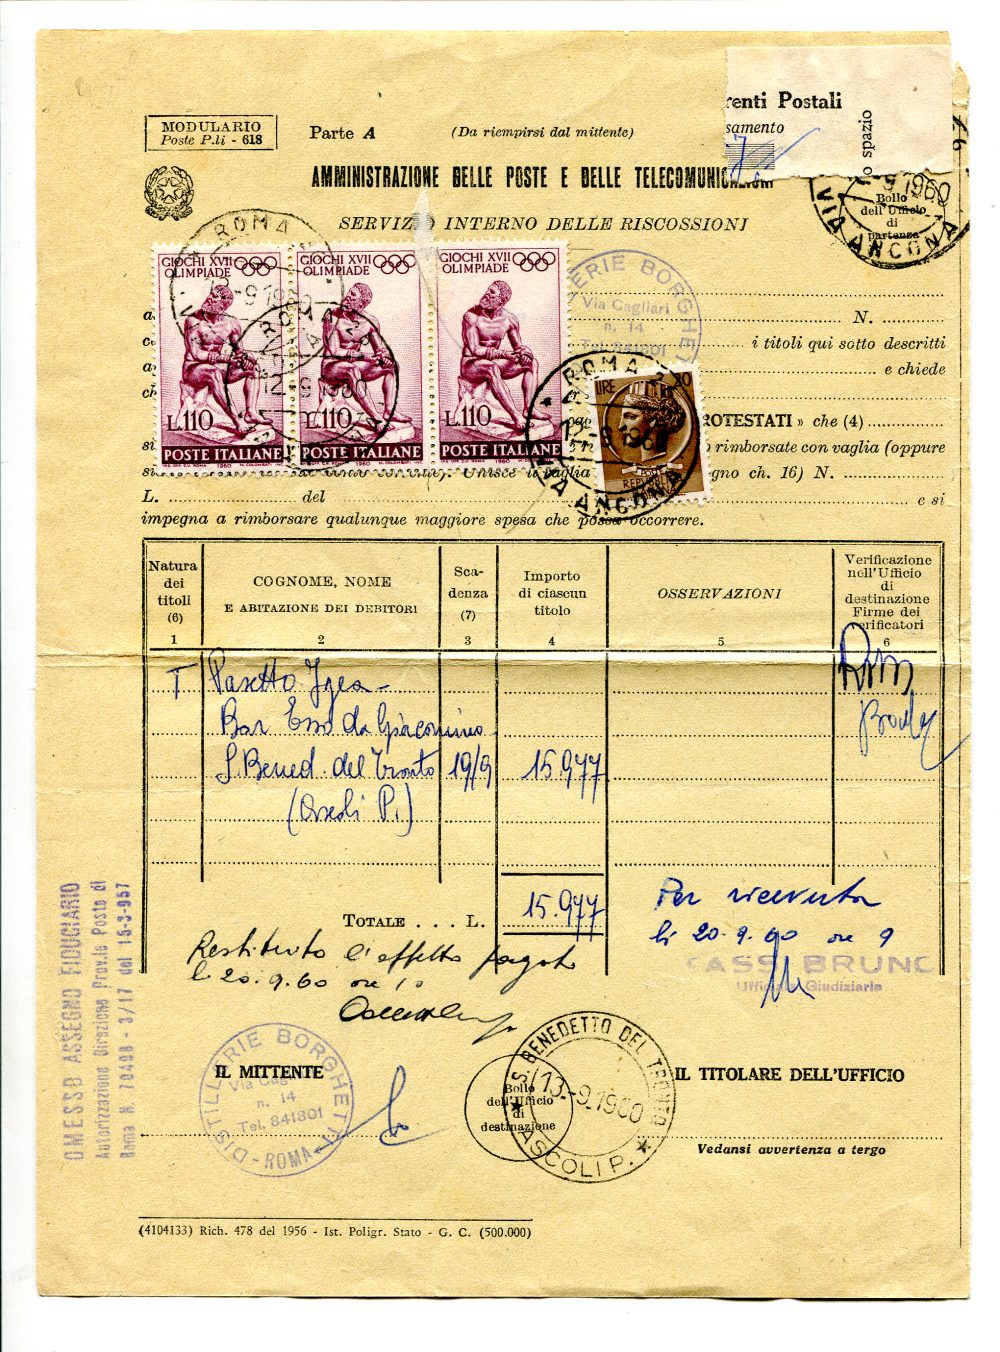 MODULARIO
Poste P.li - 618
Parte A
(Da riempirsi dal mittente)
renti Postali
samento
lo spazio
AMMINISTRAZIONE DELLE POSTE E DELLE TELECOMUNICAZIONI
SERVIZIO INTERNO DELLE RISCOSSIONI
9 1960
VIA ANCONA
Bollo
dell'Ufficio
di
partenza
ROMA
-9 1960
GIOCHI XVII
OLIMPIADE
L.110
POSTE ITALIANE
GIOCHI XVII
OLIMPIADE
L.110
POSTE ITALIANE
GIOCHI XVII
OLIMPIADE
L.110
POSTE ITALIANE
ROMA
12.-9 1960
ERIE BORGHET
Via Cagliari
n. 14
Tel. 841801
N.
i titoli qui sotto descritti
e chiede
ROMA
VIA ANCONA
LIRE 20
POSTE
REPUBBLICA
ROTESTATI » che (4)
rimborsate con vaglia (oppure
gno ch. 16) N.
L. del e si
impegna a rimborsare qualunque maggiore spesa che possa occorrere.
Natura dei titoli (6)
COGNOME, NOME E ABITAZIONE DEI DEBITORI
Scadenza (7)
Importo di ciascun titolo
OSSERVAZIONI
Verificazione nell'Ufficio di destinazione Firme dei verificatori
1 2 3 4 5 6
T Pasetto Igea -
Bar Esso da Giacomino
S. Bened. del Tronto 19/9 15.977
(Ascoli P.)
TOTALE . . . L. 15.977
Restituito l'effetto pagato
lì 20.9.60 ore 10
Per ricevuta
lì 20.9.60 ore 9
CASSI BRUNO
Ufficiale Giudiziario
OMESSO ASSEGNO FIDUCIARIO
Autorizzazione Direzione Prov.le Poste di
Roma N. 70498 - 3/17 del 15-3-957
IL MITTENTE
DISTILLERIE BORGHETTI
Via Cagliari
n. 14
Tel. 841801
-ROMA-
Bollo
dell'Ufficio
di
destinazione
S. BENEDETTO DEL TRONTO
13.-9.1960
ASCOLI P.
IL TITOLARE DELL'UFFICIO
Vedansi avvertenza a tergo
(4104133) Rich. 478 del 1956 - Ist. Poligr. Stato - G. C. (500.000)